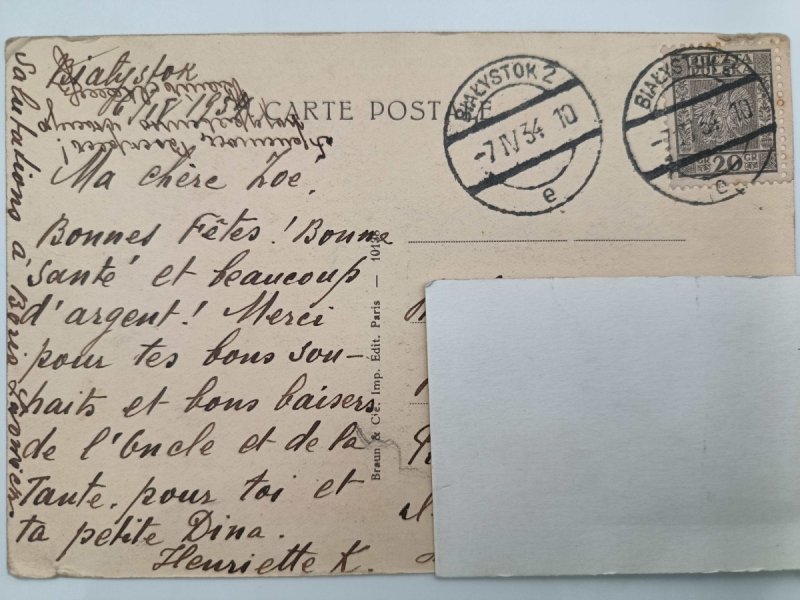 Białystok
6/IV 1934
CARTE POSTALE
Ma chère Zoe,
Bonnes Fêtes! Bonne
santé et beaucoup
d'argent! Merci
pour tes bons sou-
haits et bons baisers
de l'Oncle et de la
Tante, pour toi et
ta petite Dina.
Henriette K.
Salutations à Boris
Braun & Cie. Imp. Edit. Paris —
BIAŁYSTOK 2
-7 IV 34 10
e
BIAŁYSTOK
34 10
e
POCZTA
POLSKA
20